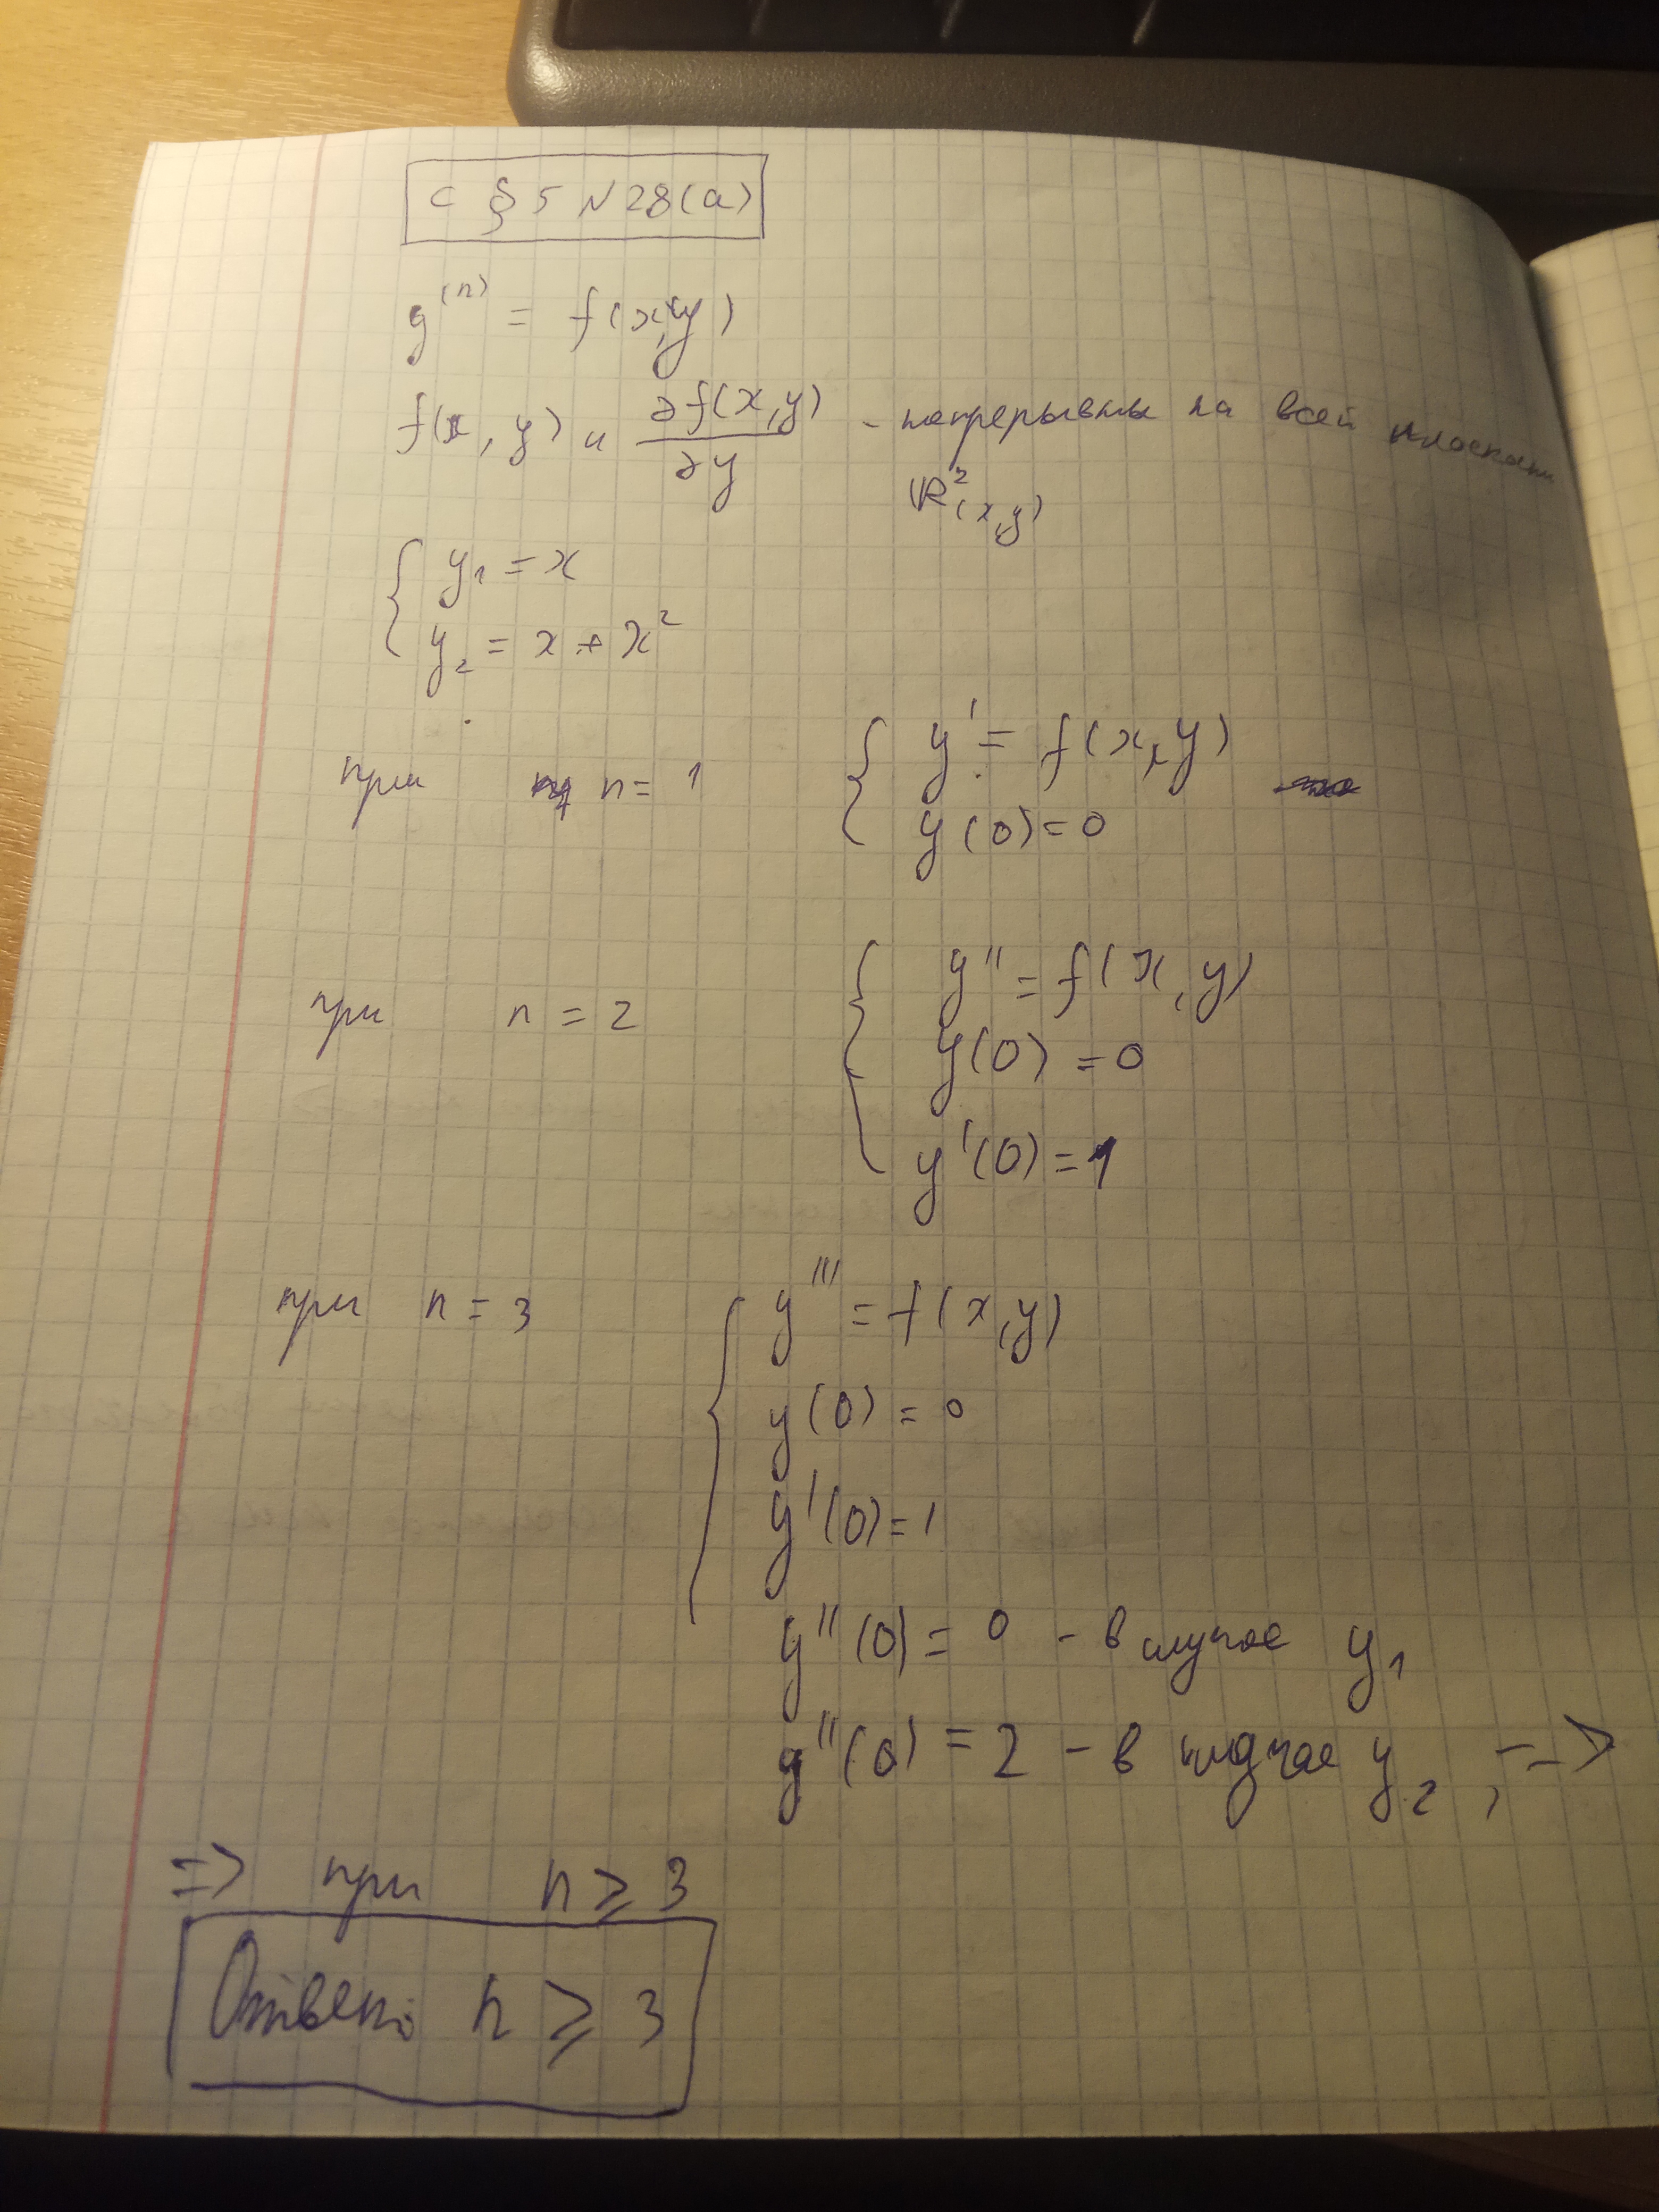 С § 5 N 28(а)
y^(n) = f(x,y)
f(x, y) и ∂f(x,y)/∂y - непрерывны на всей плоскости
ℝ²(x,y)
{ y₁ = x
{ y₂ = x + x²
при n = 1 { y' = f(x,y)
y(0) = 0
при n = 2 { y'' = f(x, y)
y(0) = 0
y'(0) = 1
при n = 3 { y''' = f(x,y)
y(0) = 0
y'(0) = 1
y''(0) = 0 - в случае y₁
y''(0) = 2 - в случае y₂, =>
=> при n ≥ 3
Ответ: n ≥ 3